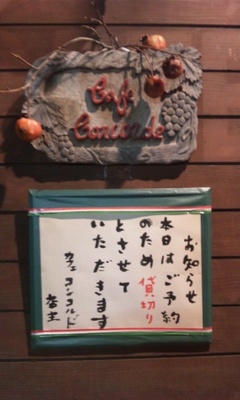 Cafe
Concorde
お知らせ
本日はご予約
のため貸切り
とさせて
いただきます
カフェコンコルド
店主